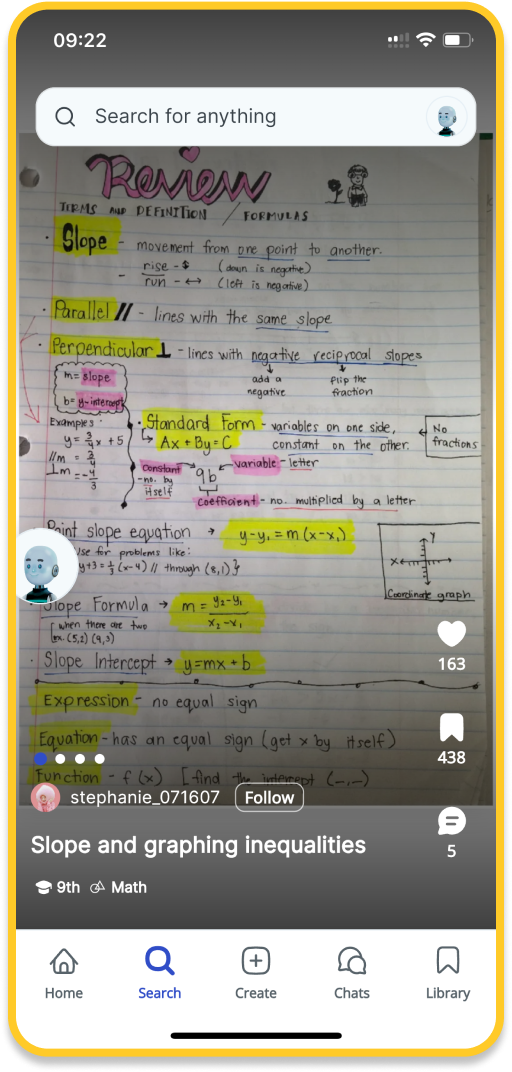 09:22
Search for anything
Review
TERMS AND DEFINITION / FORMULAS
· Slope - movement from one point to another.
- rise - $ (down is negative)
run - ↔ (left is negative)
· Parallel // - lines with the same slope
· Perpendicular ⊥ - lines with negative reciprocal slopes
add a negative
flip the fraction
m = slope
b = y-intercept
Examples:
y = 3/4 x + 5
//m = 3/4
⊥m = -4/3
· Standard Form - variables on one side,
constant on the other.
Ax + By = C
No fractions
constant
- no. by itself
9b
variable - letter
coefficient - no. multiplied by a letter
Point slope equation → y-y₁ = m(x-x₁)
use for problems like:
y+3 = 1/3 (x-4) // through (8,1)}
Y
X
Coordinate graph
Slope Formula → m = y₂-y₁ / x₂-x₁
[when there are two
ex. (5,2) (9,3)
· Slope Intercept → y=mx + b
Expression - no equal sign
Equation - has an equal sign (get x by itself)
Function - f(x) [-find the intercept (-,-)
163
438
stephanie_071607
Follow
5
Slope and graphing inequalities
9th
Math
Home
Search
Create
Chats
Library